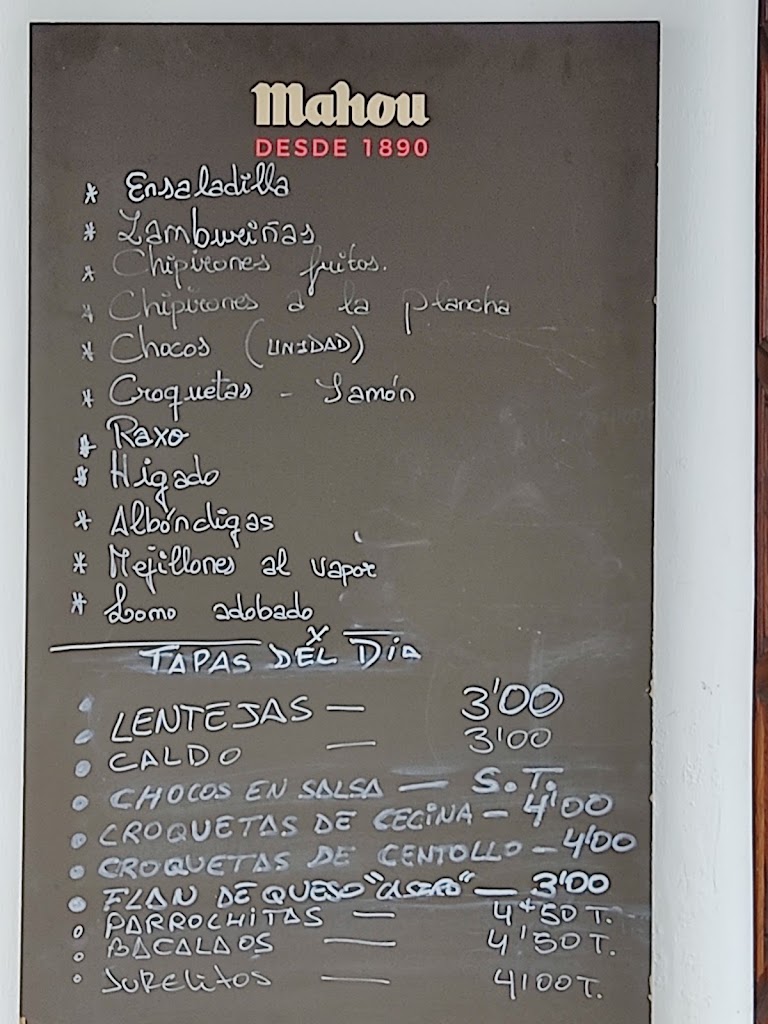 Mahou
DESDE 1890
* Ensaladilla
* Zamburiñas
* Chipirones fritos.
* Chipirones a la plancha
* Chocos (UNIDAD)
* Croquetas - Jamón
* Raxo
* Higado
* Albóndigas
* Mejillones al vapor
* Lomo adobado
TAPAS DEL DIA
• LENTEJAS — 3'00
• CALDO — 3'00
• CHOCOS EN SALSA — S.T.
• CROQUETAS DE CECINA — 4'00
• CROQUETAS DE CENTOLLO — 4'00
• FLAN DE QUESO "CASERO" — 3'00
• PARROCHITAS — 4'50 T.
• BACALAOS — 4'50 T.
• JURELITOS — 4'00 T.